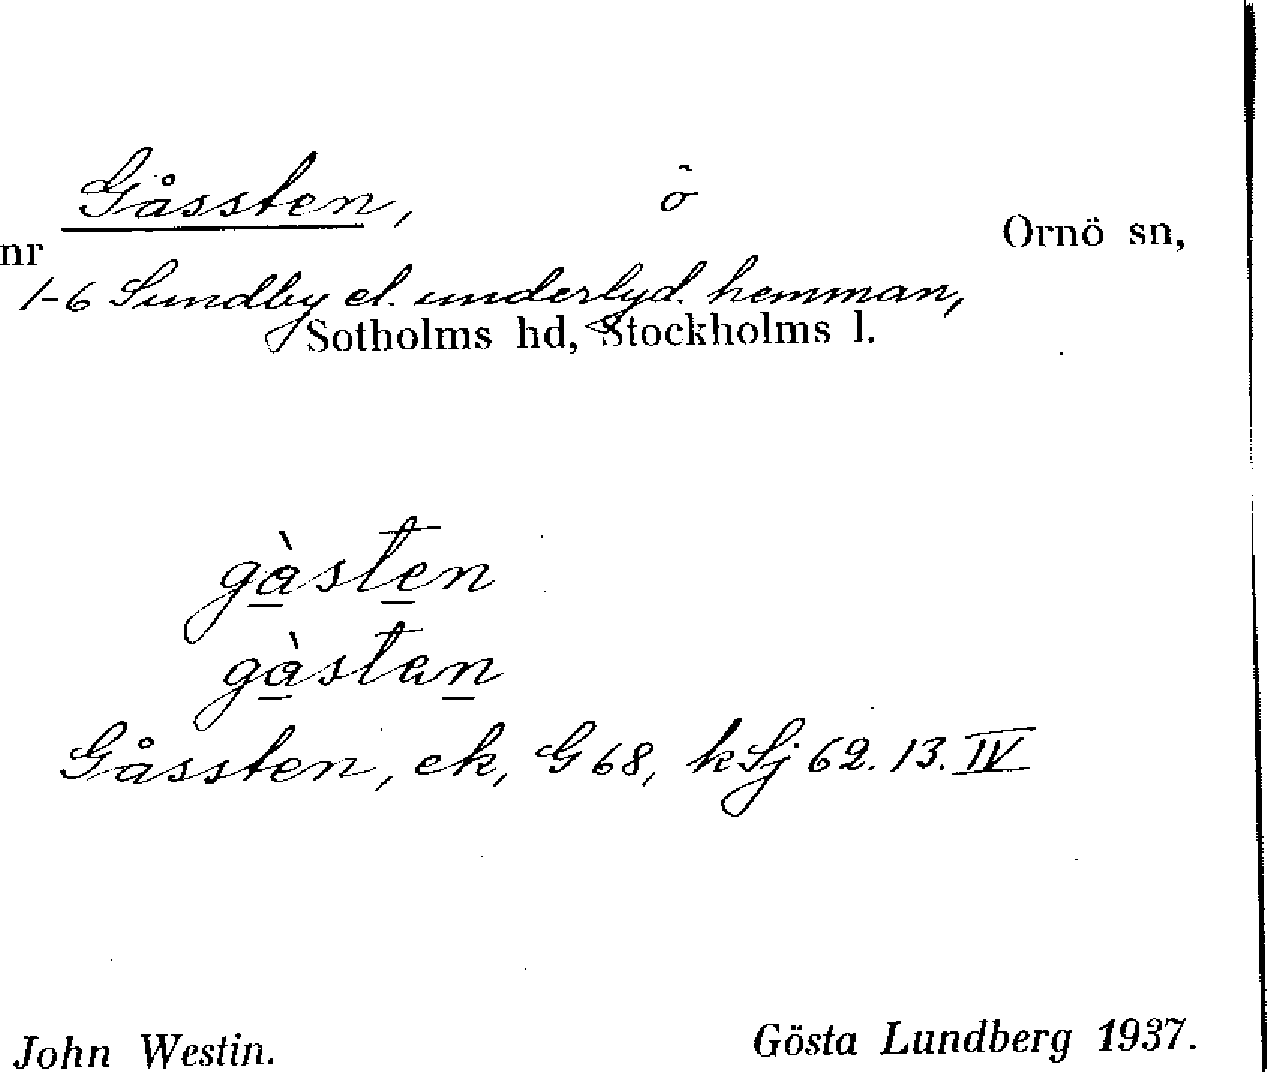 Gåssten, ö
Ornö sn,
nr
1-6 Sundby el. underlyd. hemman,
Sotholms hd, Stockholms l.
gàsten
gàstan
Gåssten, ek, G 68, kSj 62. 13. IV
John Westin. Gösta Lundberg 1937.